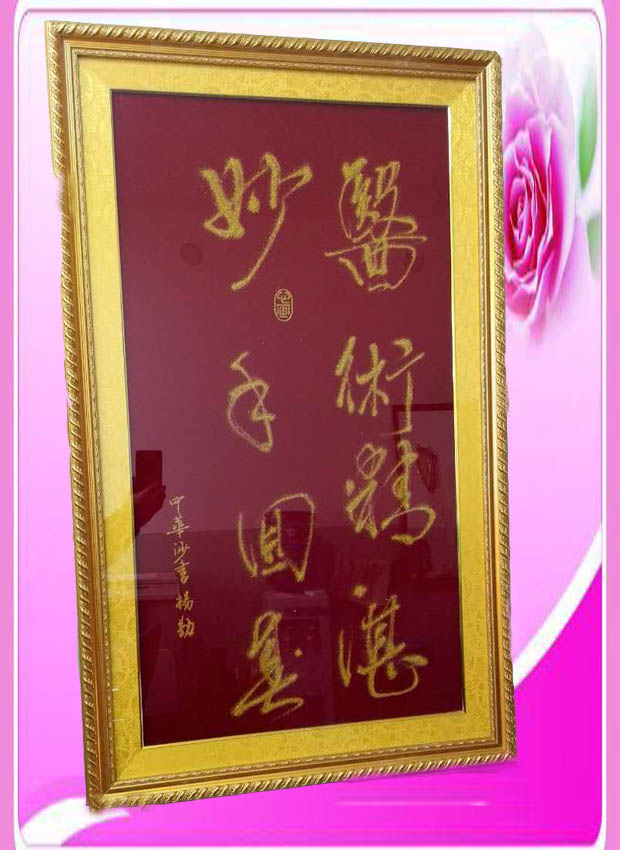 醫術精湛
妙手回春
中華沙書楊勤